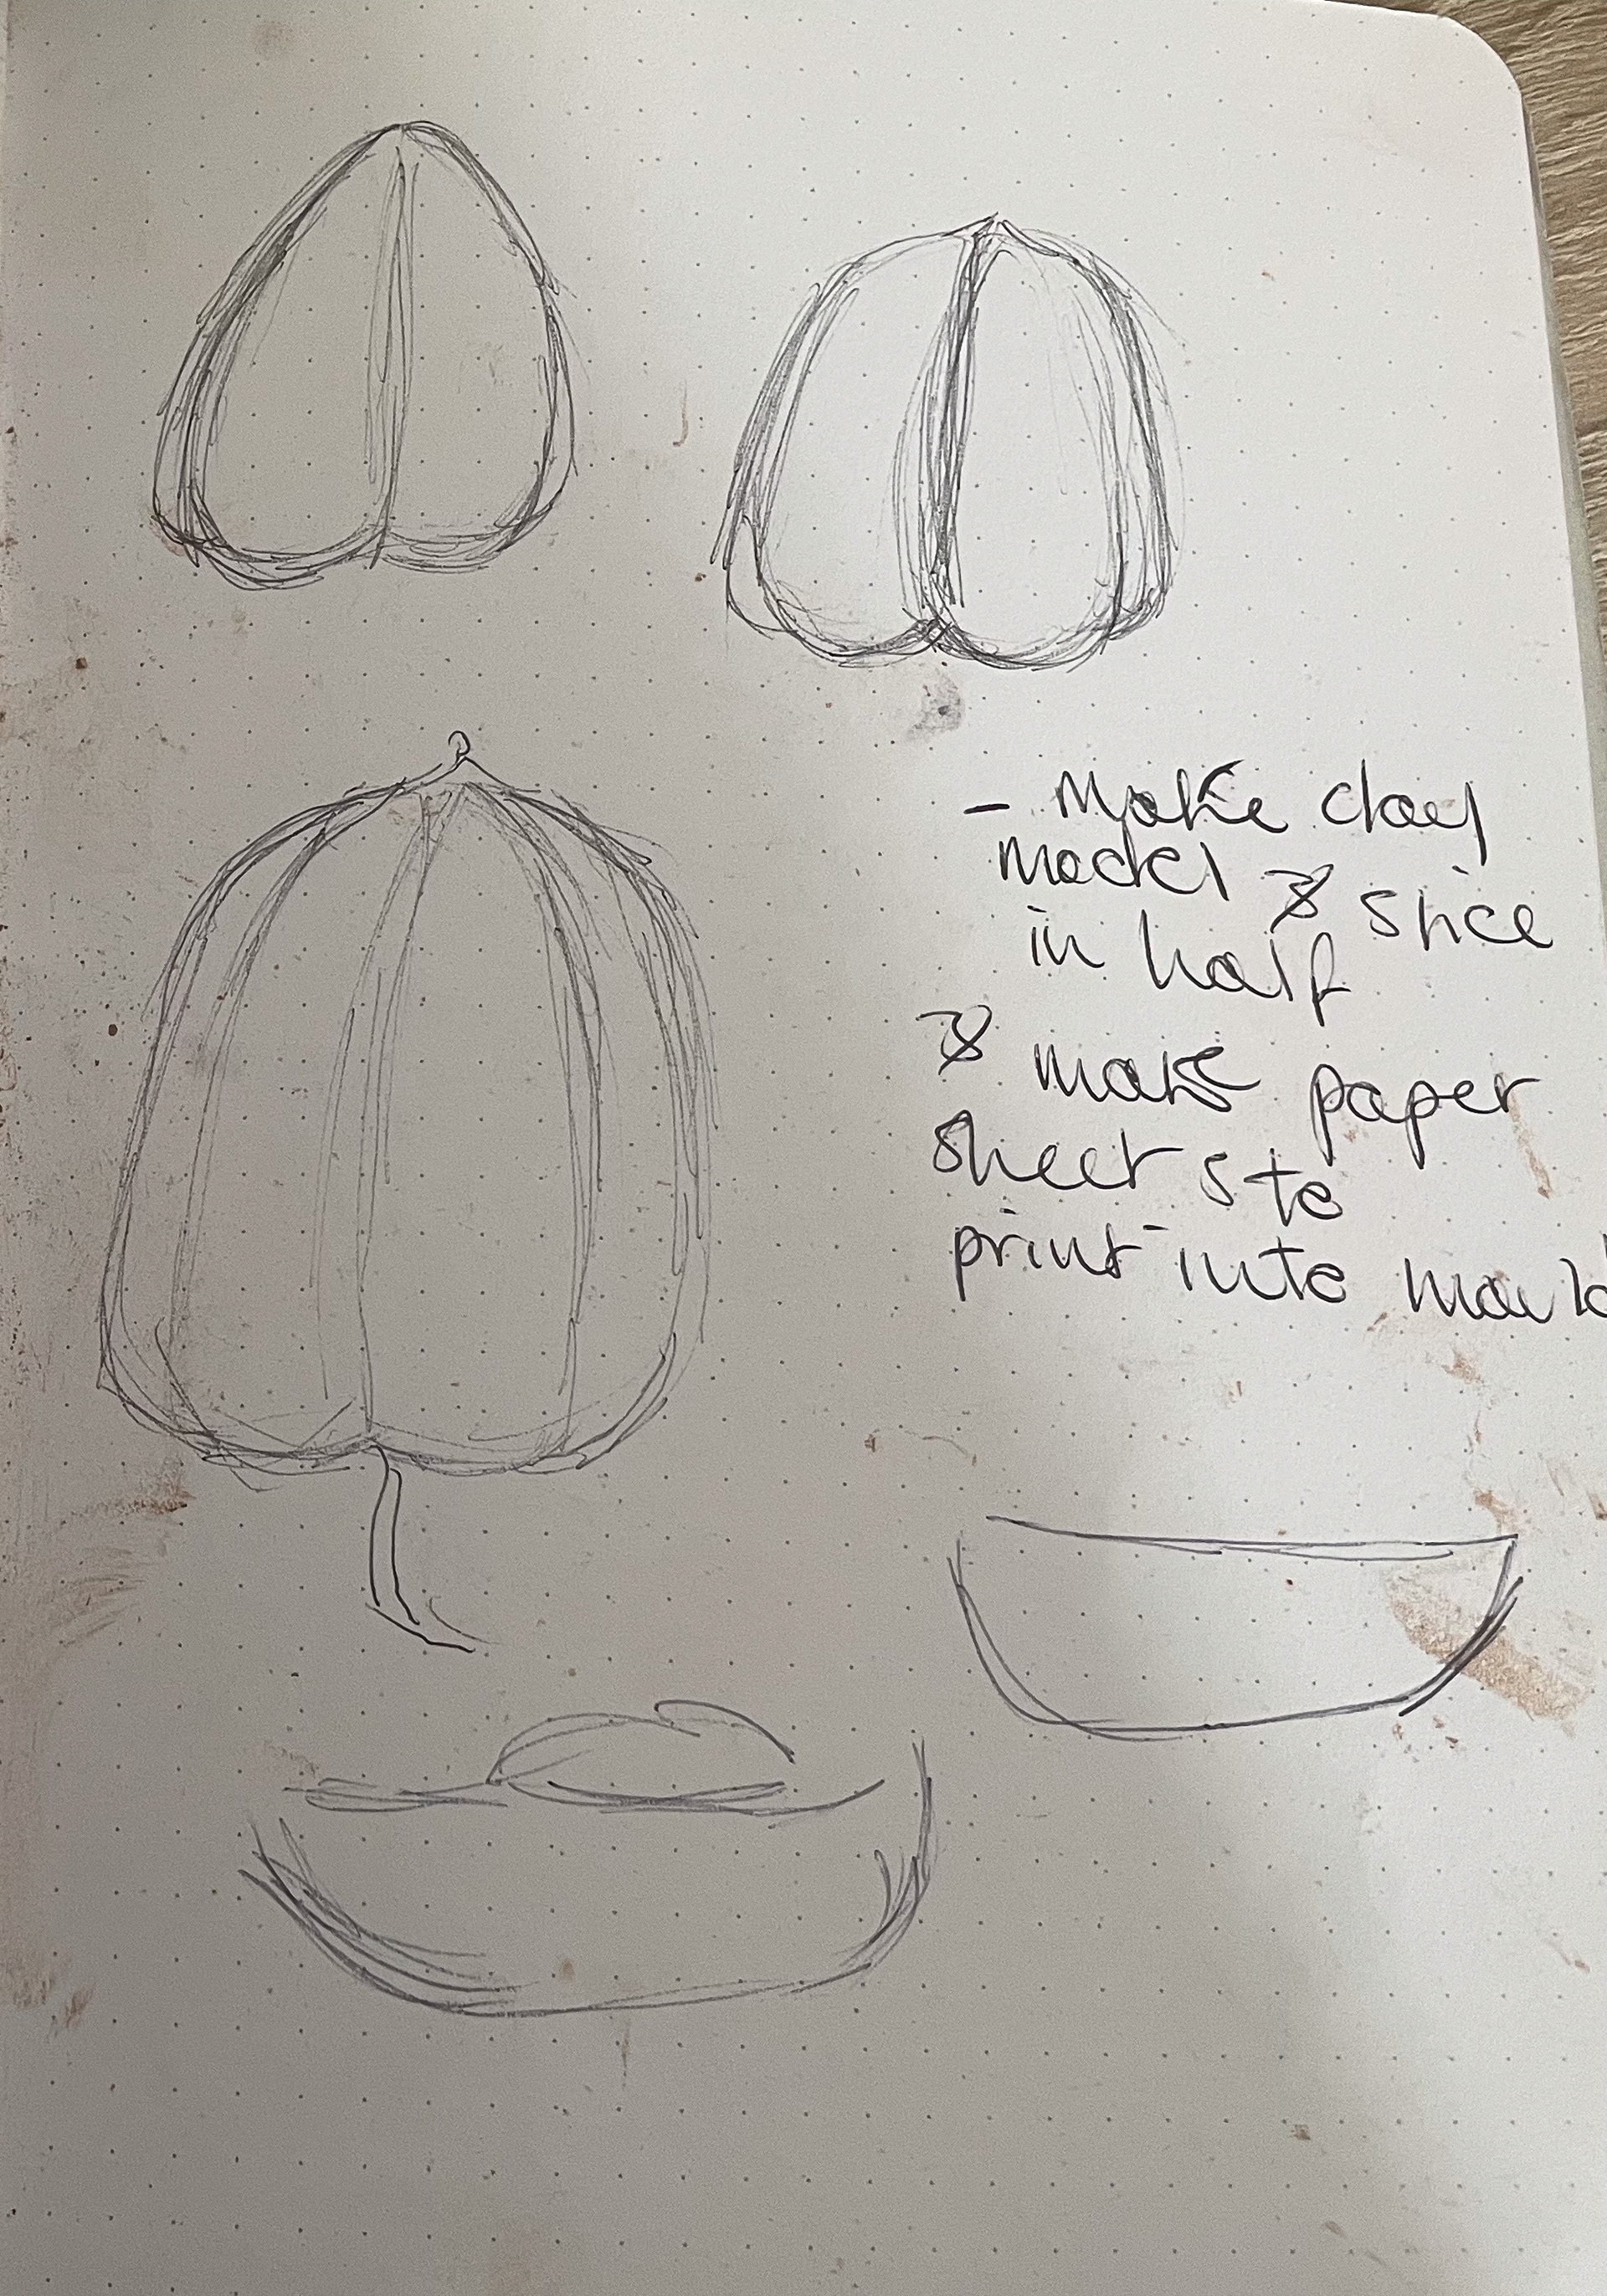 - Make clay
model & slice
in half
& make paper
sheets to
print into mould